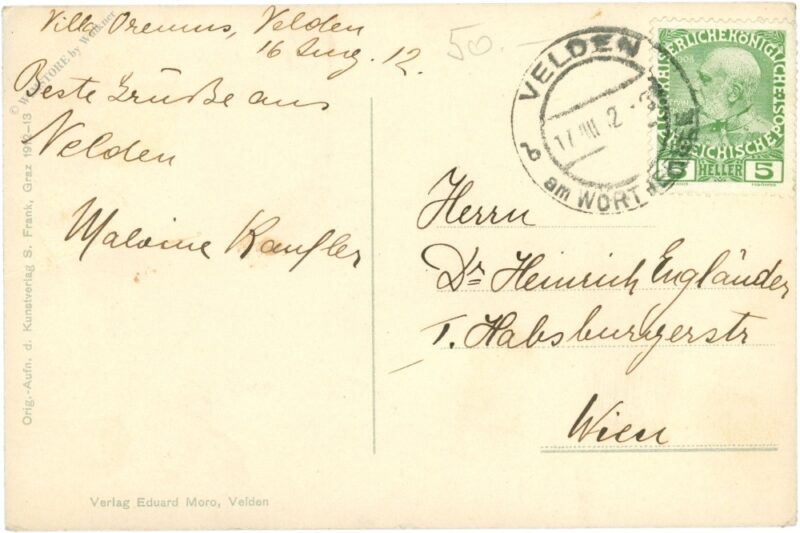 Villa Oremus, Velden
16 Aug. 12.
50.-
Beste Grüße aus
Velden
Malvine Kaufler
Herrn
Dr Heinrich Engländer
I. Habsburgerstr
Wien
VELDEN
17 VIII 12
am WÖRTHERSEE
KAISERLICHE KÖNIGLICHE
ÖSTERREICHISCHE POST
5 HELLER 5
© WEBSTORE by Wolkner
Orig.-Aufn. d. Kunstverlag S. Frank, Graz 1912-13
Verlag Eduard Moro, Velden